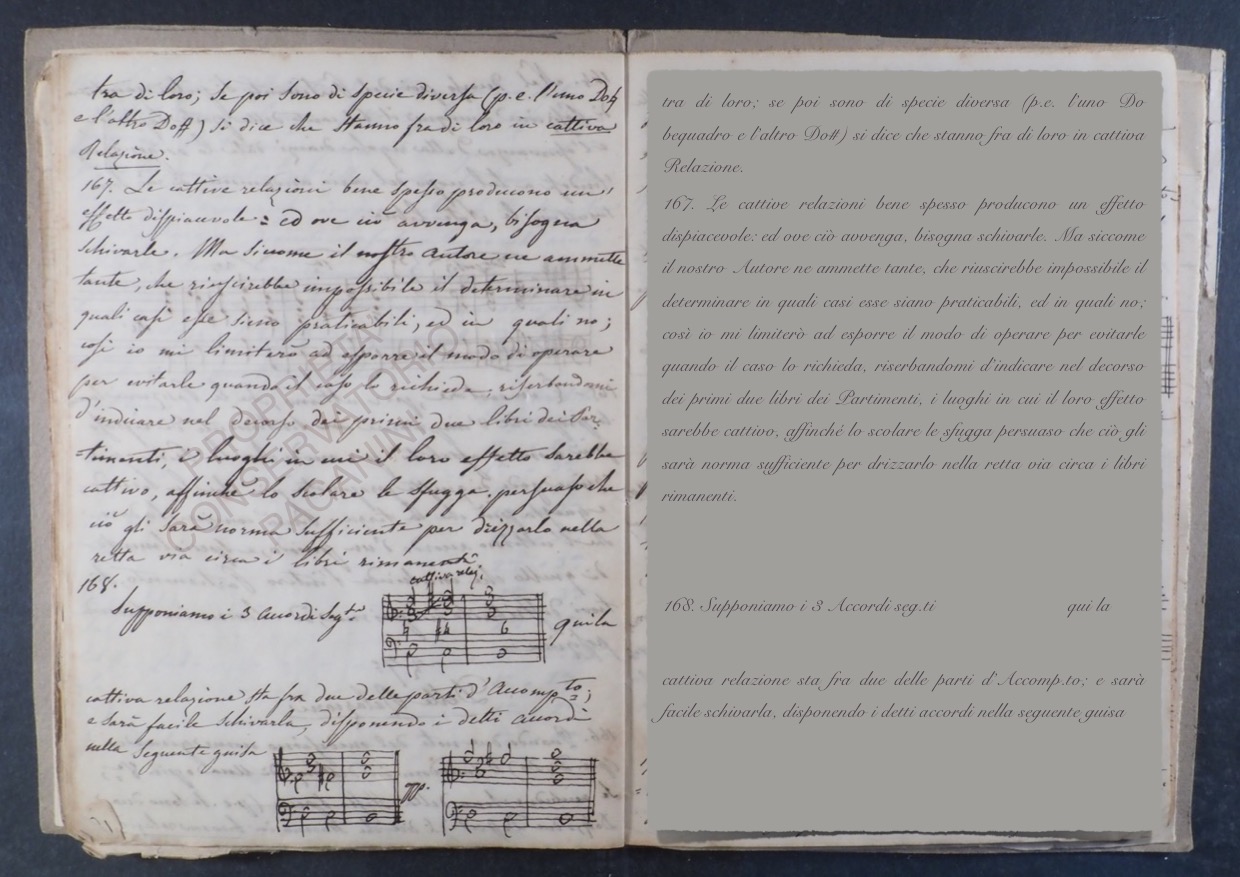 tra di loro; se poi sono di specie diversa (p.e. l'uno Do♮
e l'altro Do#) si dice che stanno fra di loro in cattiva
Relazione.
167. Le cattive relazioni bene spesso producono un
effetto dispiacevole: ed ove ciò avvenga, bisogna
schivarle. Ma siccome il nostro Autore ne ammette
tante, che riuscirebbe impossibile il determinare in
quali casi esse sieno praticabili, ed in quali no;
così io mi limiterò ad esporre il modo di operare
per evitarle quando il caso lo richieda, riserbandomi
d'indicare nel decorso dei primi due libri dei Par-
timenti, i luoghi in cui il loro effetto sarebbe
cattivo, affinché lo scolare le sfugga, persuaso che
ciò gli sarà norma sufficiente per drizzarlo nella
retta via circa i libri rimanenti.
168.
cattiva relaz:
Supponiamo i 3 accordi seg.ti qui la
cattiva relazione sta fra due delle parti d'Accomp.to;
e sarà facile schivarla, disponendo i detti accordi
nella seguente guisa
PROPRIETA'
CONSERVATORIO
PAGANINI
tra di loro; se poi sono di specie diversa (p.e. l'uno Do
bequadro e l'altro Do#) si dice che stanno fra di loro in cattiva
Relazione.
167. Le cattive relazioni bene spesso producono un effetto
dispiacevole: ed ove ciò avvenga, bisogna schivarle. Ma siccome
il nostro Autore ne ammette tante, che riuscirebbe impossibile il
determinare in quali casi esse siano praticabili, ed in quali no;
così io mi limiterò ad esporre il modo di operare per evitarle
quando il caso lo richieda, riserbandomi d'indicare nel decorso
dei primi due libri dei Partimenti, i luoghi in cui il loro effetto
sarebbe cattivo, affinché lo scolare le sfugga persuaso che ciò gli
sarà norma sufficiente per drizzarlo nella retta via circa i libri
rimanenti.
168. Supponiamo i 3 Accordi seg.ti qui la
cattiva relazione sta fra due delle parti d'Accomp.to; e sarà
facile schivarla, disponendo i detti accordi nella seguente guisa